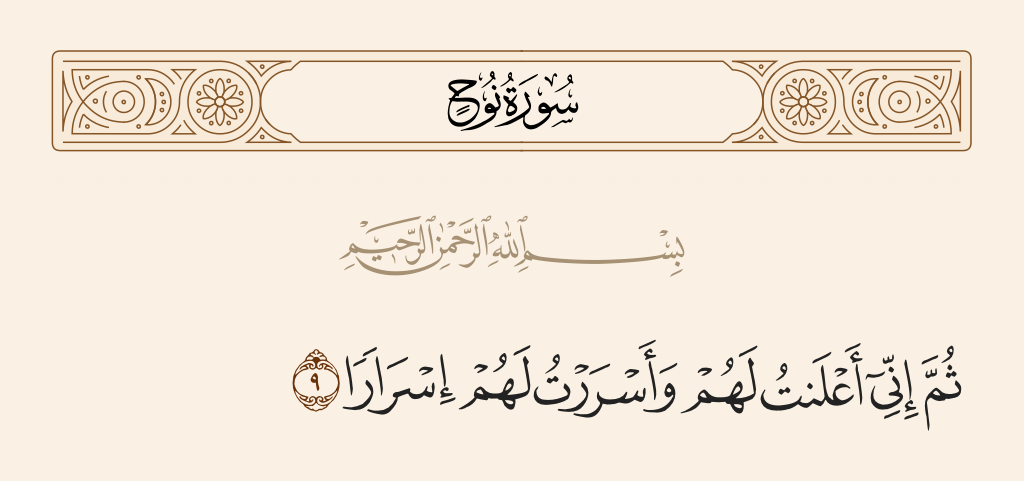 سُورَةُ نُوحٍ
بِسْمِ ٱللَّهِ ٱلرَّحْمَٰنِ ٱلرَّحِيمِ
ثُمَّ إِنِّىٓ أَعْلَنتُ لَهُمْ وَأَسْرَرْتُ لَهُمْ إِسْرَارًا ٩